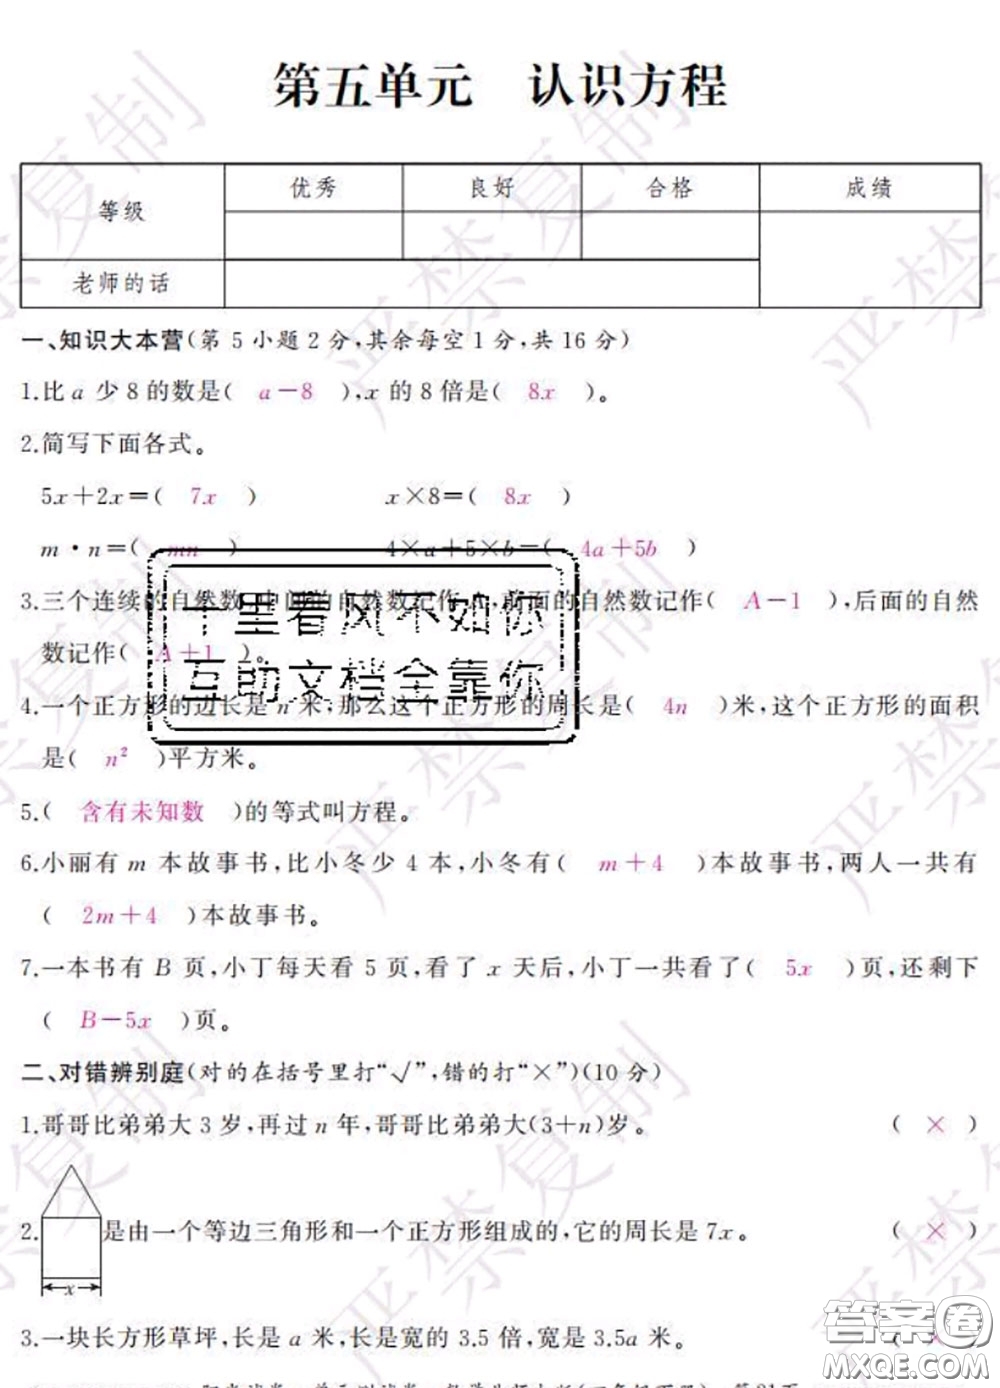 第五单元 认识方程
等级 优秀 良好 合格 成绩
老师的话
一、知识大本营(第 5 小题 2 分,其余每空 1 分,共 16 分)
1.比 a 少 8 的数是( a-8 ),x 的 8 倍是( 8x )。
2.简写下面各式。
5x+2x=( 7x ) x×8=( 8x )
m·n=( mn ) 4×a+5×b=( 4a+5b )
3.三个连续的自然数,中间的自然数记作 A,前面的自然数记作( A-1 ),后面的自然
数记作( A+1 )。
千里看风不如你
互助文档全靠你
4.一个正方形的边长是 n 米,那么这个正方形的周长是( 4n )米,这个正方形的面积
是( n² )平方米。
5.( 含有未知数 )的等式叫方程。
6.小丽有 m 本故事书,比小冬少 4 本,小冬有( m+4 )本故事书,两人一共有
( 2m+4 )本故事书。
7.一本书有 B 页,小丁每天看 5 页,看了 x 天后,小丁一共看了( 5x )页,还剩下
( B-5x )页。
二、对错辨别庭(对的在括号里打“√”,错的打“×”)(10 分)
1.哥哥比弟弟大 3 岁,再过 n 年,哥哥比弟弟大(3+n)岁。 ( × )
2. 是由一个等边三角形和一个正方形组成的,它的周长是 7x。 ( × )
x
3.一块长方形草坪,长是 a 米,长是宽的 3.5 倍,宽是 3.5a 米。 ( × )
答案圈
MXQE.COM
严禁复制